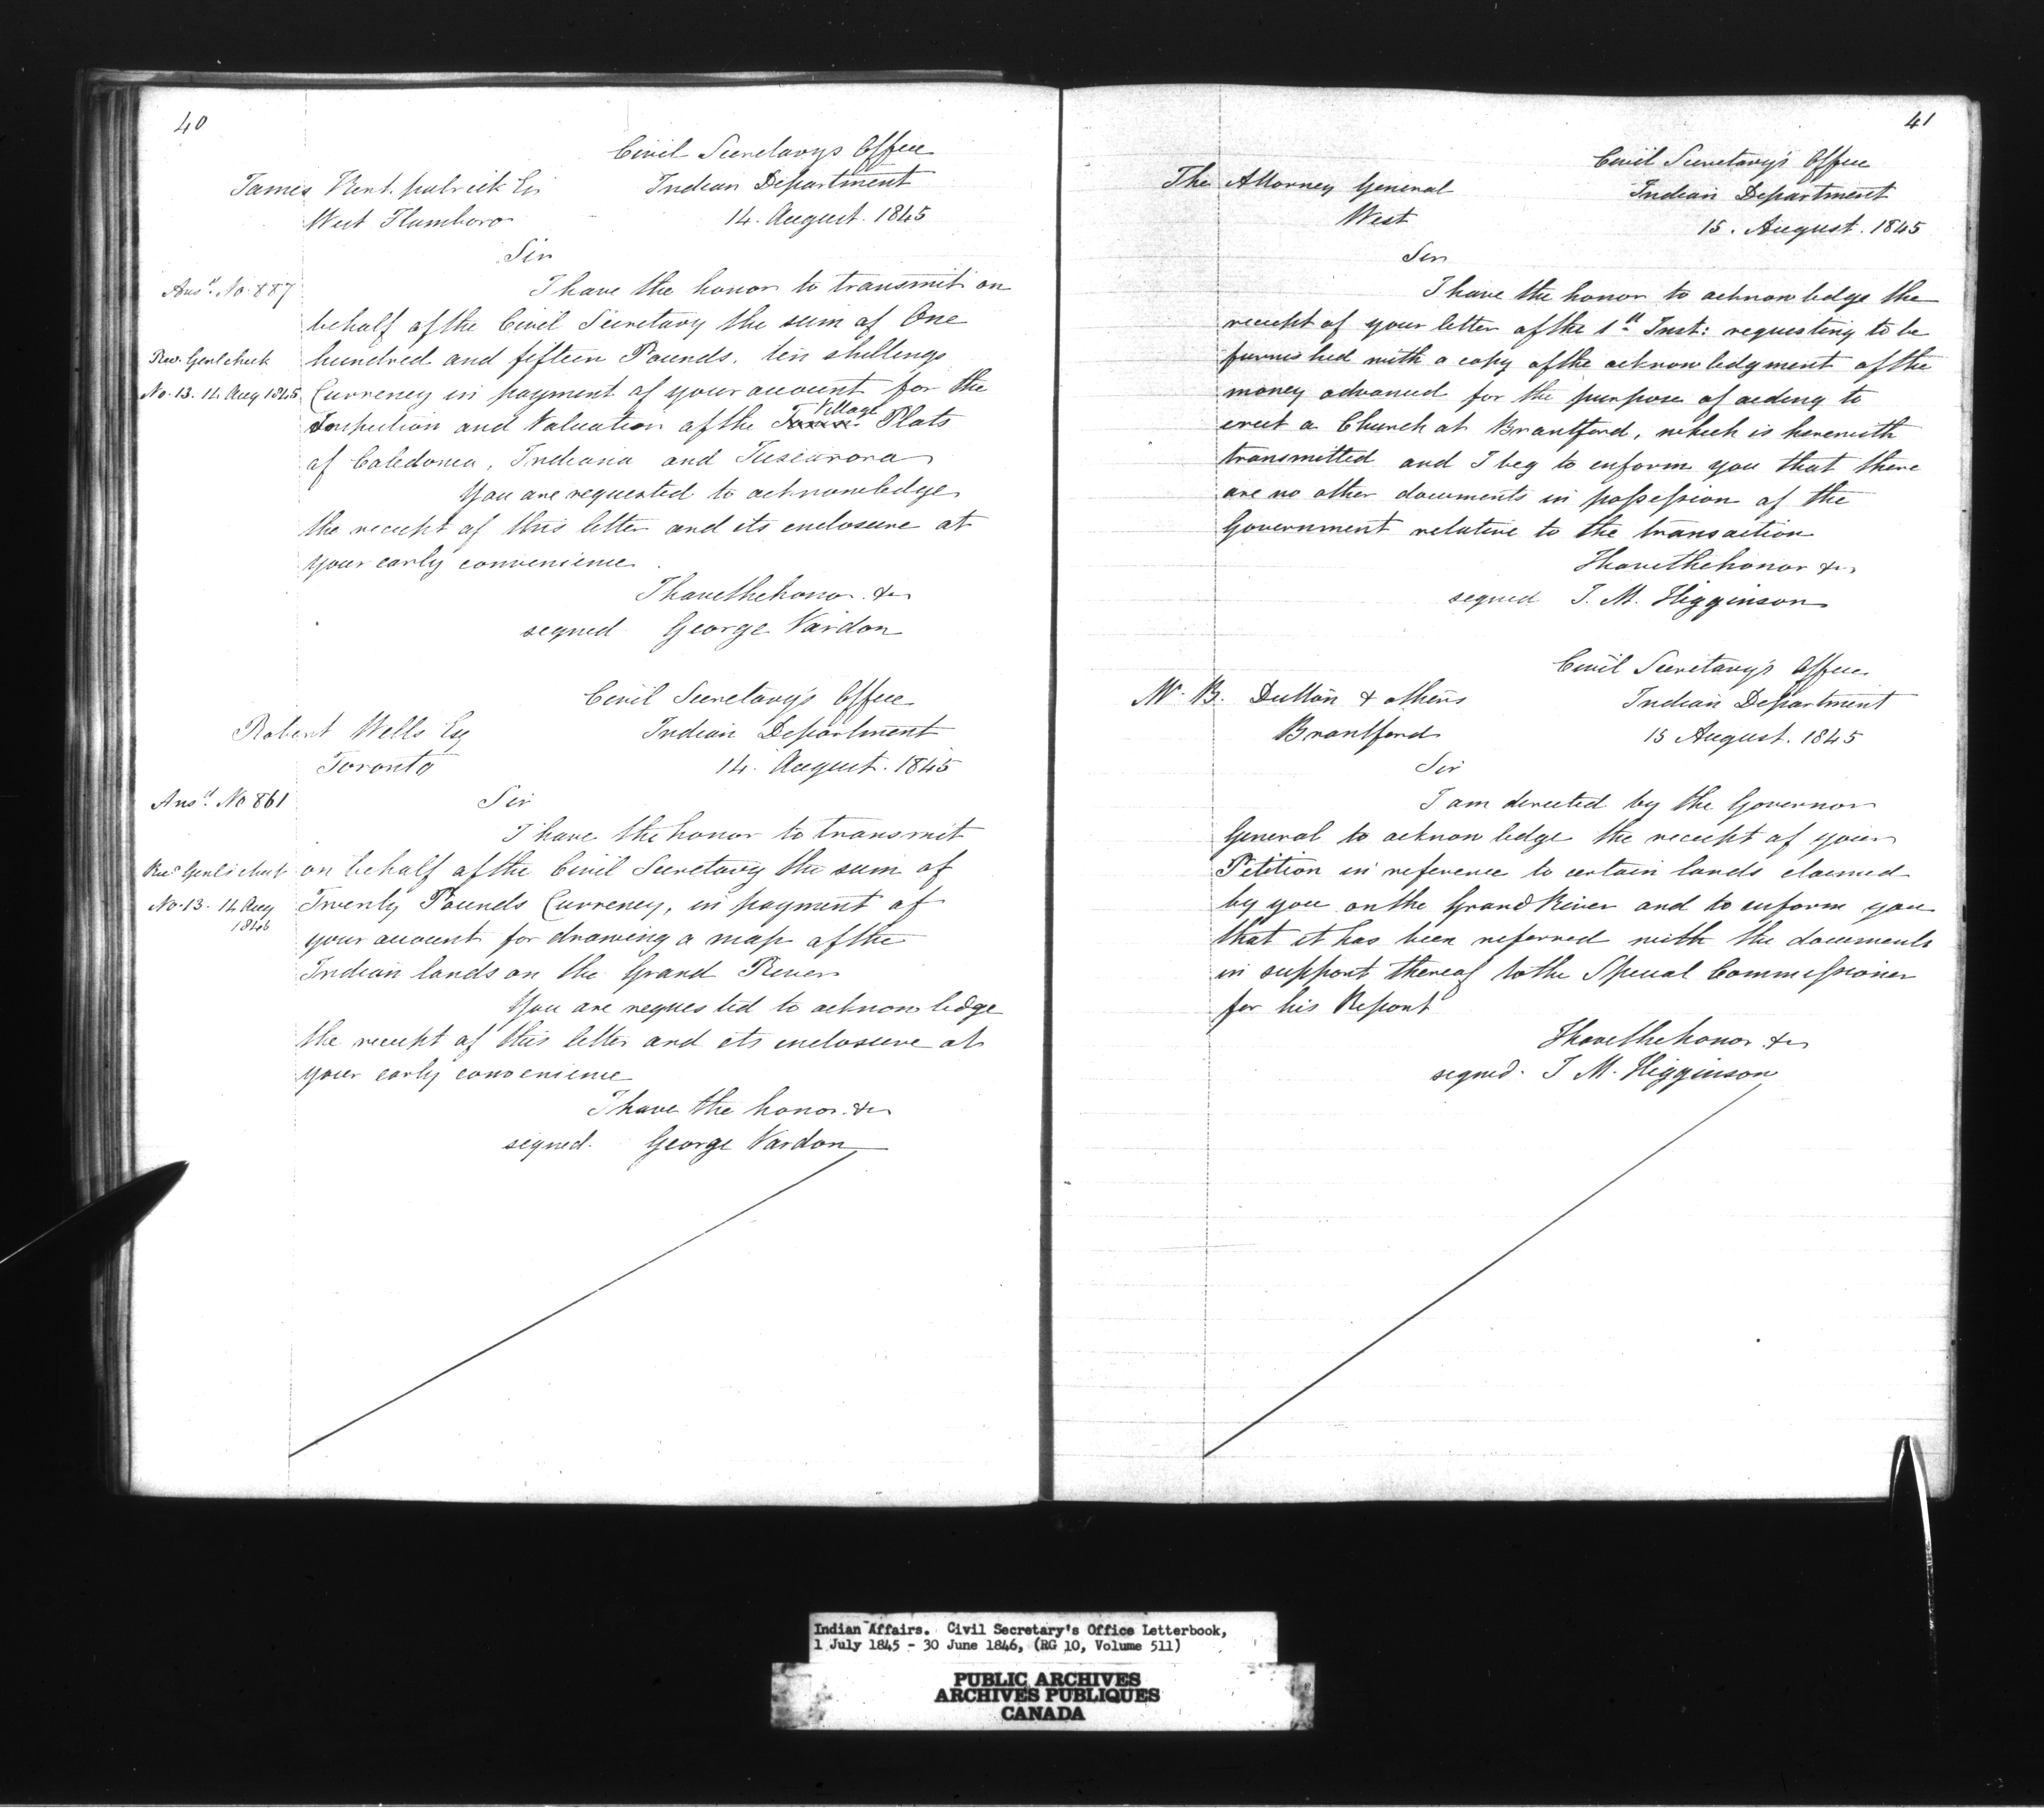 40
Civil Secretary's Office
James Kirk.patrick Esq Indian Department
West Flamboro 14. August. 1845
Sir
Ansd. No. 887
I have the honor to transmit on
behalf of the Civil Secretary the sum of One
Rec. Genl check hundred and fifteen Pounds, ten shillings
No. 13. 14 Aug 1845 Currency in payment of your account for the
Village
Inspection and Valuation of the Town Plats
of Caledonia, Indiana and Tuscarora
You are requested to acknowledge
the receipt of this letter and its enclosure at
your early convenience.
I have the honor &c
signed George Vardon
Civil Secretary's Office
Robert Wells Esq Indian Department
Toronto 14. August. 1845
Ansd. No 861 Sir
I have the honor to transmit
Rec Genl's check on behalf of the Civil Secretary the sum of
No. 13. 14 Aug Twenty Pounds Currency, in payment of
your account for drawing a map of the
Indian lands on the Grand River
You are requested to acknowledge
the receipt of this letter and its enclosure at
your early convenience
I have the honor &c
signed. George Vardon
41
Civil Secretary's Office
The Attorney General Indian Department
West 15. August. 1845
Sir
I have the honor to acknowledge the
receipt of your letter of the 1st Inst: requesting to be
furnished with a copy of the acknowledgment of the
money advanced for the purpose of aiding to
erect a Church at Brantford, which is herewith
transmitted and I beg to inform you that there
are no other documents in possession of the
Government relative to the transaction
I have the honor &c
signed J. M. Higginson
Civil Secretary's Office
Mr. B. Dutton & others Indian Department
Brantford 15 August. 1845
Sir
I am directed by the Governor
General to acknowledge the receipt of your
Petition in reference to certain lands claimed
by you on the Grand River and to inform you
that it has been referred with the documents
in support thereof to the Special Commissioner
for his Report
I have the honor &c
signed. J M. Higginson
Indian Affairs. Civil Secretary's Office Letterbook,
1 July 1845 - 30 June 1846, (RG 10, Volume 511)
PUBLIC ARCHIVES
ARCHIVES PUBLIQUES
CANADA